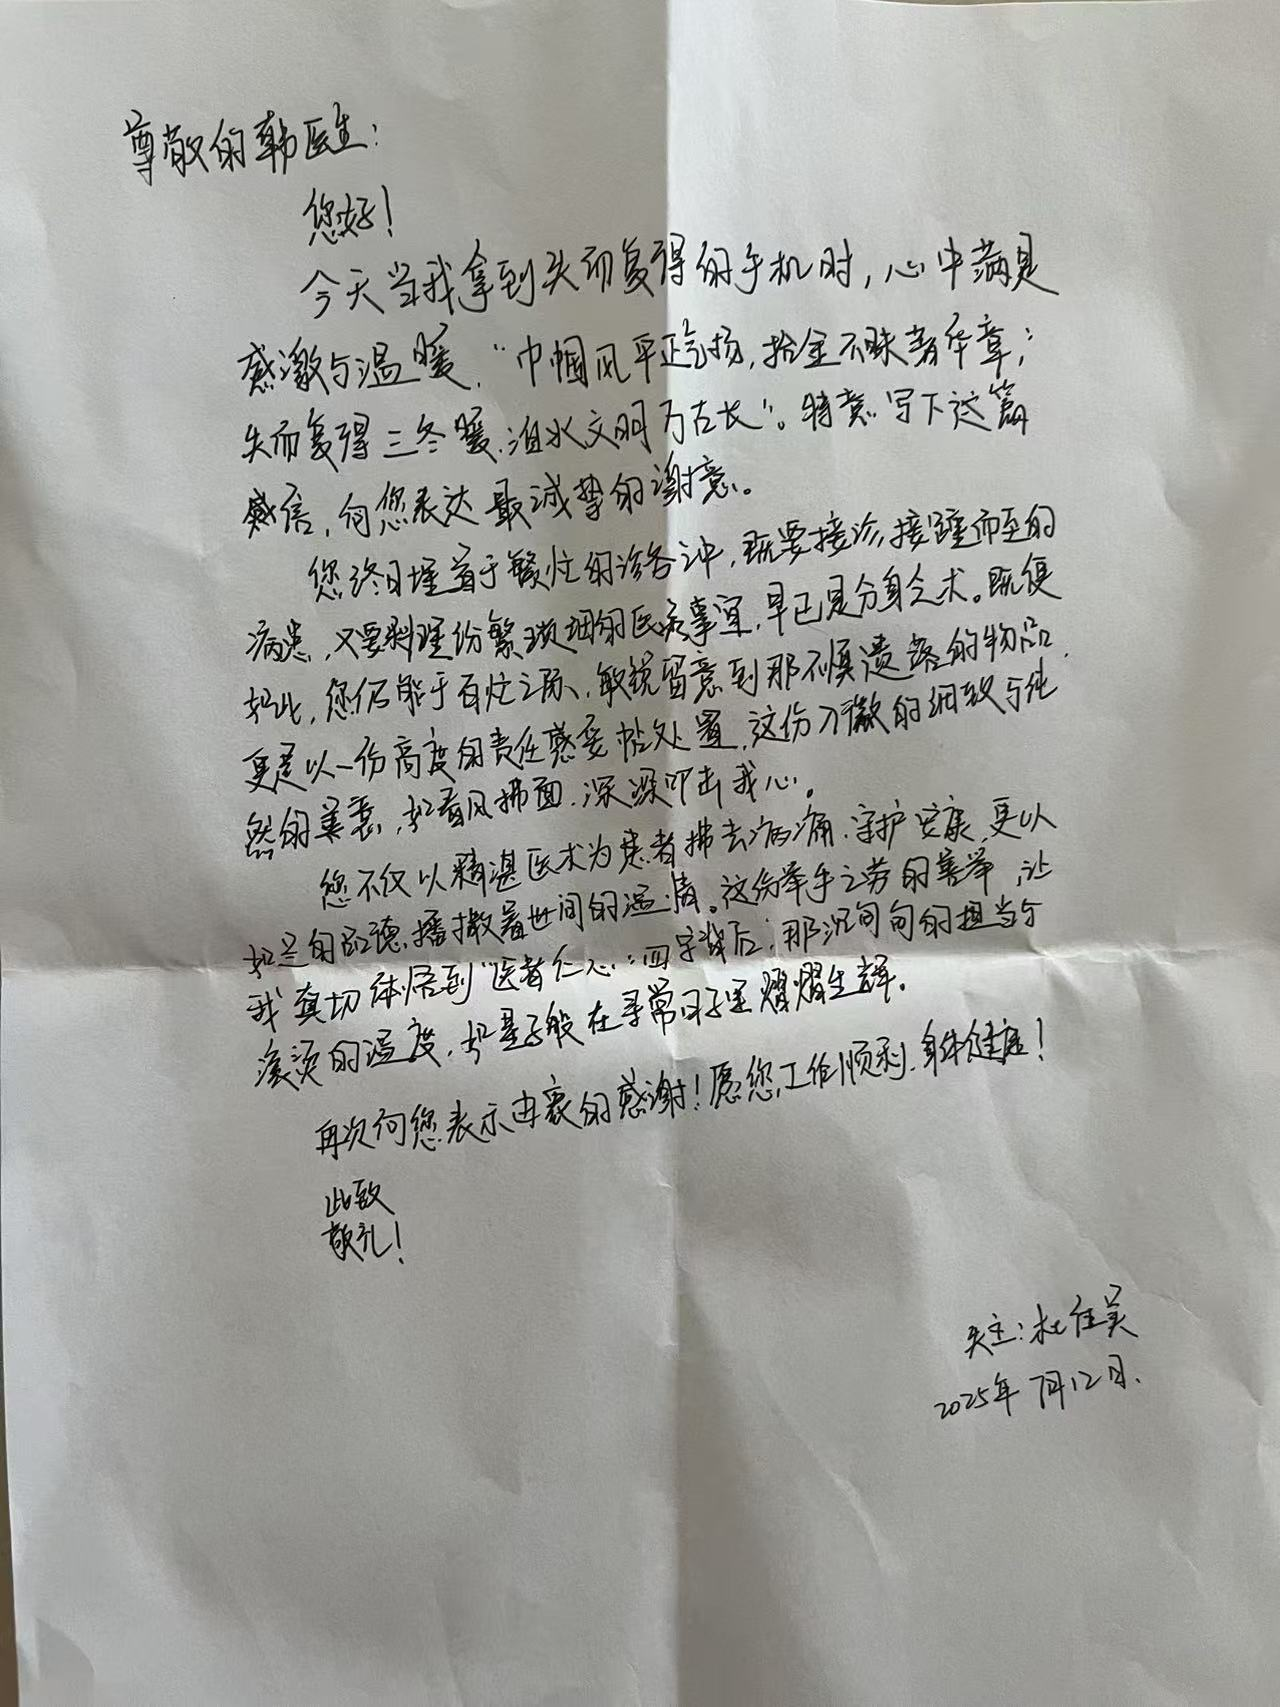 尊敬的韩医生：
您好！
今天当我拿到失而复得的手机时，心中满是
感激与温暖，“巾帼风平正气扬，拾金不昧著华章；
失而复得三冬暖，泊水文明万古长”。特意写下这篇
感信，向您表达最诚挚的谢意。
您终日埋首于繁忙的诊务之中，既要接诊接踵而至的
病患，又要料理纷繁琐细的医疗事宜，早已是分身乏术。既便
如此，您仍能于百忙之际，敏锐留意到那不慎遗落的物品，
更是以一份高度的责任感妥帖处置，这份入微的细致与纯
然的善意，如春风拂面，深深叩击我心。
您不仅以精湛医术为患者拂去病痛，守护安康，更以
如兰的品德，播撒着世间的温情。这份举手之劳的善举，让
我真切体悟到“医者仁心”四字背后，那沉甸甸的担当与
滚烫的温度，如星子般在寻常日子里熠熠生辉。
再次向您表示由衷的感谢！愿您工作顺利，身体健康！
此致
敬礼！
失主：杜佳美
2025年7月12日.